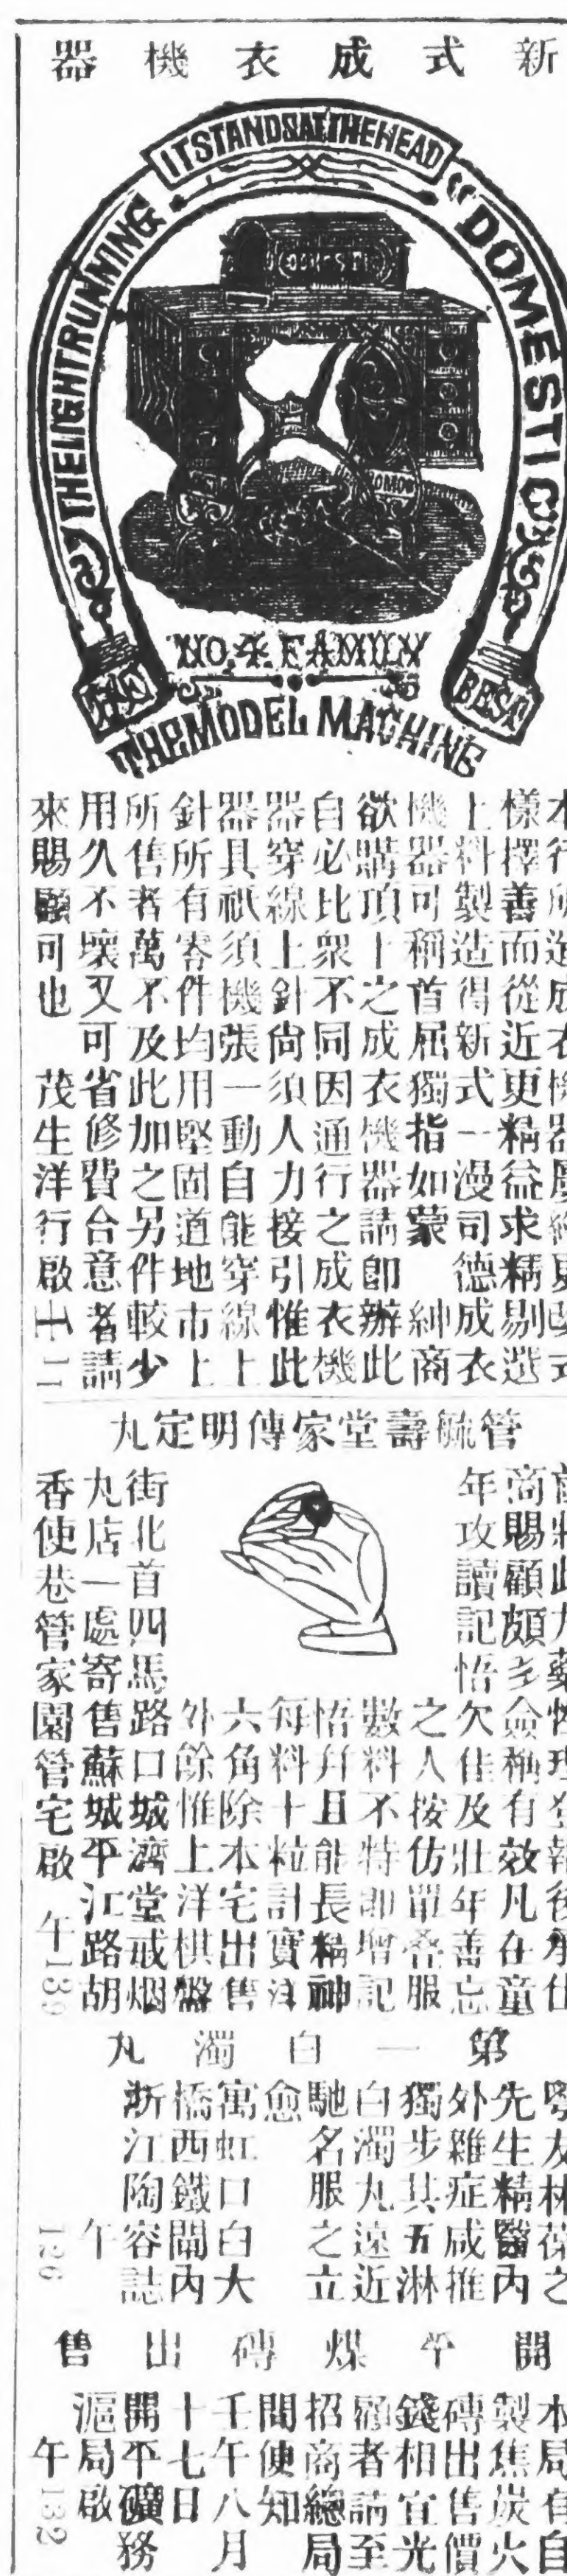 新式成衣機器
IT STANDS AT THE HEAD
THE LIGHT RUNNING
"DOMESTIC"
DOMESTIC
NO. 4. FAMILY
THE
BEST
THE MODEL MACHINE
本行所造成衣機器屢經更改式
樣擇善而從近更精益求精剔選
上料製造得新式一漫司德成衣
機器可稱首屈獨指如蒙　紳商
欲購頂上之成衣機器請卽辦此
自必比衆不同因通行之成衣機
器穿線上針尙須人力接引惟此
器具祇須機張一動自能穿線上
針所有零件均用堅固道地市上
所售者萬不及此加之另件較少
用久不壞又可省修費合意者請
來賜顧可也　茂生洋行啟　壬11
管毓壽堂家傳明定丸
商賜顧頗多僉稱有效凡在童
年攻讀記悟欠佳及壯年善忘
之人按仿單叠服
數料不特卽增記
悟幷且能長精神
每料十粒計實洋
六角除本宅出售
外餘惟上洋棋盤
街北首四馬路口城濟堂戒烟
丸店一處寄售蘇城平江路胡
香使巷管家園管宅啟　午139
第一白濁丸
粵友林葆之
先生精醫內
外雜症咸推
獨步其五淋
白濁丸遠近
馳名服之立
愈
寓虹口白大
橋西鐵閘內
浙江陶容誌
午126
開平煤磚出售
本局有自
製焦炭火
磚出售價
錢相宜光
顧者請至
招商總局
問便知
壬午八月
十七日
開平礦務
滬局啟
午132